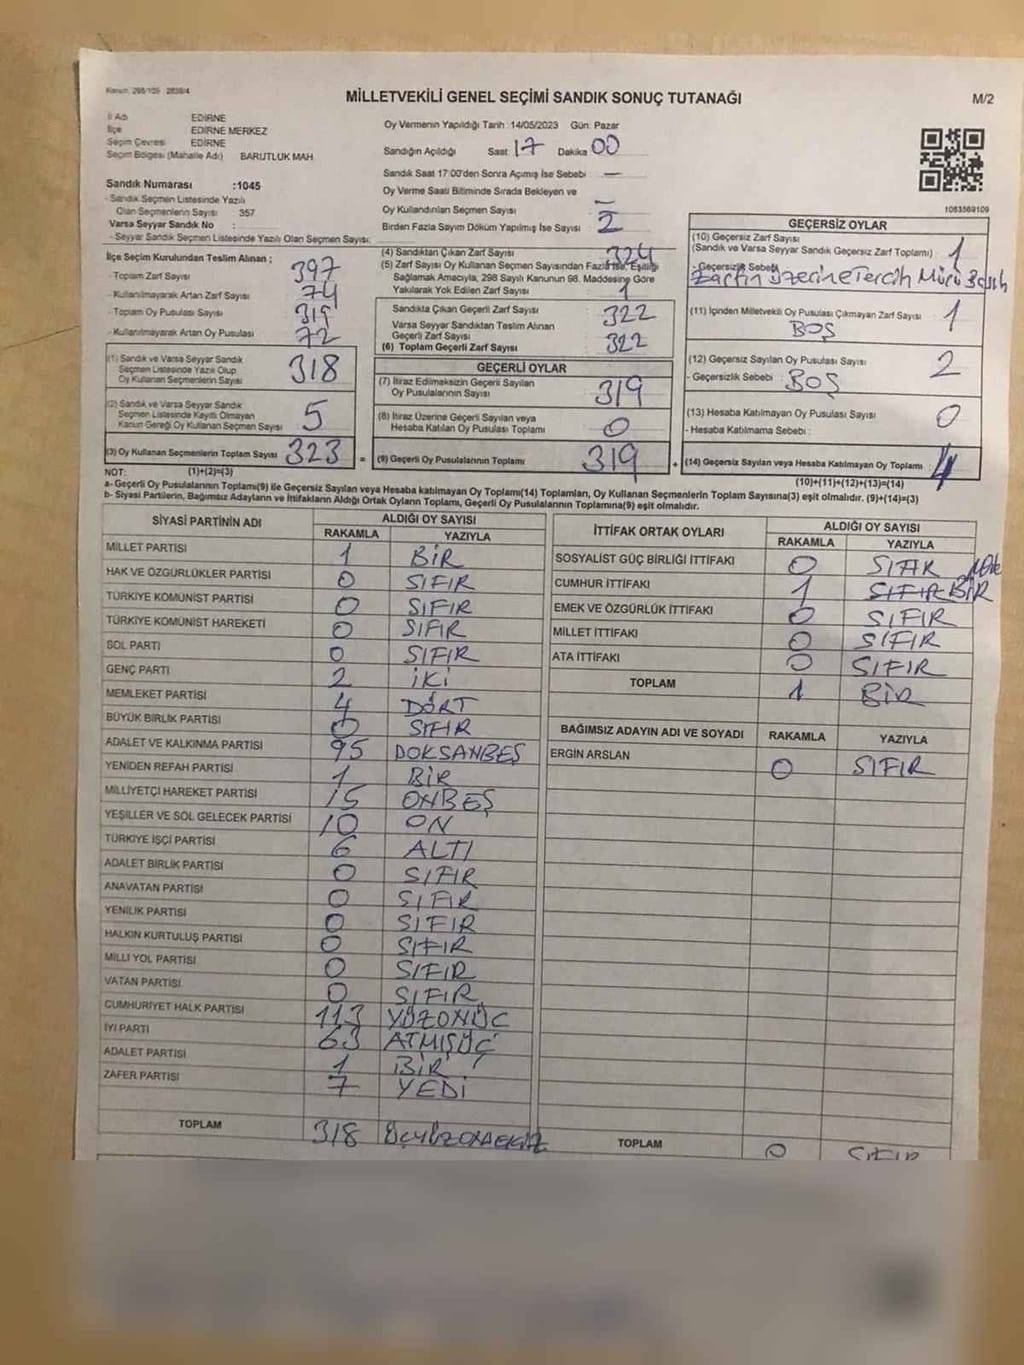 Kanun: 298/105 2839/4
MİLLETVEKİLİ GENEL SEÇİMİ SANDIK SONUÇ TUTANAĞI
M/2
İl Adı EDİRNE
İlçe EDİRNE MERKEZ
Seçim Çevresi EDİRNE
Seçim Bölgesi (Mahalle Adı) BARUTLUK MAH
Sandık Numarası :1045
- Sandık Seçmen Listesinde Yazılı
Olan Seçmenlerin Sayısı 357
Varsa Seyyar Sandık No :
- Seyyar Sandık Seçmen Listesinde Yazılı Olan Seçmen Sayısı:
Oy Vermenin Yapıldığı Tarih :14/05/2023 Gün: Pazar
Sandığın Açıldığı Saat: 17 Dakika 00
Sandık Saat 17:00'den Sonra Açımış İse Sebebi —
Oy Verme Saati Bitiminde Sırada Bekleyen ve
Oy Kullandırılan Seçmen Sayısı —
Birden Fazla Sayım Döküm Yapılmış İse Sayısı 2
1083569109
İlçe Seçim Kurulundan Teslim Alınan ;
- Toplam Zarf Sayısı 397
- Kullanılmayarak Artan Zarf Sayısı 74
- Toplam Oy Pusulası Sayısı
- Kullanılmayarak Artan Oy Pusulası 72
(1) Sandık ve Varsa Seyyar Sandık
Seçmen Listesinde Yazılı Olup
Oy Kullanan Seçmenlerin Sayısı 318
(2) Sandık ve Varsa Seyyar Sandık
Seçmen Listesinde Kayıtlı Olmayan
Kanun Gereği Oy Kullanan Seçmen Sayısı 5
(3) Oy Kullanan Seçmenlerin Toplam Sayısı 323 =
(4) Sandıktan Çıkan Zarf Sayısı 324
(5) Zarf Sayısı Oy Kullanan Seçmen Sayısından Fazla İse, Eşitliği
Sağlamak Amacıyla, 298 Sayılı Kanunun 98. Maddesine Göre
Yakılarak Yok Edilen Zarf Sayısı 1
Sandıkta Çıkan Geçerli Zarf Sayısı 322
Varsa Seyyar Sandıktan Teslim Alınan
Geçerli Zarf Sayısı
(6) Toplam Geçerli Zarf Sayısı 322
GEÇERLİ OYLAR
(7) İtiraz Edilmeksizin Geçerli Sayılan
Oy Pusulalarının Sayısı 319
(8) İtiraz Üzerine Geçerli Sayılan veya
Hesaba Katılan Oy Pusulası Toplamı 0
(9) Geçerli Oy Pusulalarının Toplamı 319 +
GEÇERSİZ OYLAR
(10) Geçersiz Zarf Sayısı
(Sandık ve Varsa Seyyar Sandık Geçersiz Zarf Toplamı) 1
- Geçersizlik Sebebi
Zarfın üzerine Tercih Mührü Basılı
(11) İçinden Milletvekili Oy Pusulası Çıkmayan Zarf Sayısı 1
BOŞ
(12) Geçersiz Sayılan Oy Pusulası Sayısı 2
- Geçersizlik Sebebi : BOŞ
(13) Hesaba Katılmayan Oy Pusulası Sayısı 0
- Hesaba Katılmama Sebebi :
(14) Geçersiz Sayılan veya Hesaba Katılmayan Oy Toplamı 4
NOT: (1)+(2)=(3) (10)+(11)+(12)+(13)=(14)
a- Geçerli Oy Pusulalarının Toplamı(9) ile Geçersiz Sayılan veya Hesaba katılmayan Oy Toplamı(14) Toplamları, Oy Kullanan Seçmenlerin Toplam Sayısına(3) eşit olmalıdır. (9)+(14)=(3)
b- Siyasi Partilerin, Bağımsız Adayların ve İttifakların Aldığı Ortak Oyların Toplamı, Geçerli Oy Pusulalarının Toplamına(9) eşit olmalıdır.
SİYASİ PARTİNİN ADI ALDIĞI OY SAYISI
RAKAMLA YAZIYLA
MİLLET PARTİSİ 1 BİR
HAK VE ÖZGÜRLÜKLER PARTİSİ 0 SIFIR
TÜRKİYE KOMÜNİST PARTİSİ 0 SIFIR
TÜRKİYE KOMÜNİST HAREKETİ 0 SIFIR
SOL PARTİ 0 SIFIR
GENÇ PARTİ 2 İKİ
MEMLEKET PARTİSİ 4 DÖRT
BÜYÜK BİRLİK PARTİSİ 0 SIFIR
ADALET VE KALKINMA PARTİSİ 95 DOKSANBEŞ
YENİDEN REFAH PARTİSİ 1 BİR
MİLLİYETÇİ HAREKET PARTİSİ 15 ONBEŞ
YEŞİLLER VE SOL GELECEK PARTİSİ 10 ON
TÜRKİYE İŞÇİ PARTİSİ 6 ALTI
ADALET BİRLİK PARTİSİ 0 SIFIR
ANAVATAN PARTİSİ 0 SIFIR
YENİLİK PARTİSİ 0 SIFIR
HALKIN KURTULUŞ PARTİSİ 0 SIFIR
MİLLİ YOL PARTİSİ 0 SIFIR
VATAN PARTİSİ 0 SIFIR
CUMHURİYET HALK PARTİSİ 113 YÜZONÜÇ
İYİ PARTİ 63 ATMIŞÜÇ
ADALET PARTİSİ 1 BİR
ZAFER PARTİSİ 7 YEDİ
TOPLAM 318
İTTİFAK ORTAK OYLARI ALDIĞI OY SAYISI
RAKAMLA YAZIYLA
SOSYALİST GÜÇ BİRLİĞİ İTTİFAKI 0 SIFIR
CUMHUR İTTİFAKI 1 SIFIR BİR
EMEK VE ÖZGÜRLÜK İTTİFAKI 0 SIFIR
MİLLET İTTİFAKI 0 SIFIR
ATA İTTİFAKI 0 SIFIR
TOPLAM 1 BİR
BAĞIMSIZ ADAYIN ADI VE SOYADI RAKAMLA YAZIYLA
ERGİN ARSLAN 0 SIFIR
TOPLAM 0 SIFIR